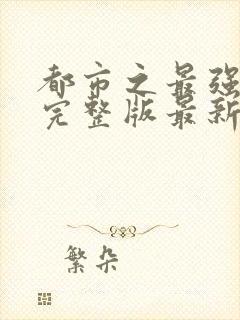 都市之最强
完整版最新
繁朵